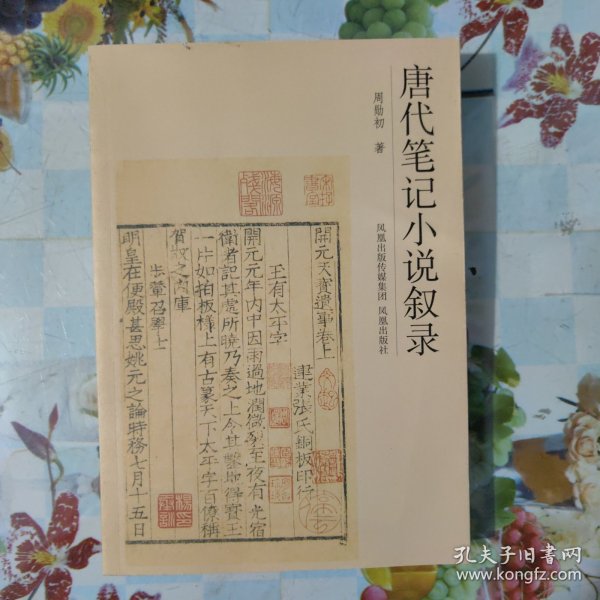 唐代笔记小说叙录
周勋初 著
凤凰出版传媒集团 凤凰出版社
開元天寶遺事卷上
建業張氏銅板印行
王有太平字
開元元年内中因雨過地潤微裂至夜有光宿
衛者記其處所曉乃奏之上令其鑿地得寶玉
一片如拍板樣上有古篆天下太平字百僚稱
賀收之内庫
步輦召學士
明皇在便殿甚思姚元之論時務七月十五日
孔夫子旧书网
www.kongfz.com